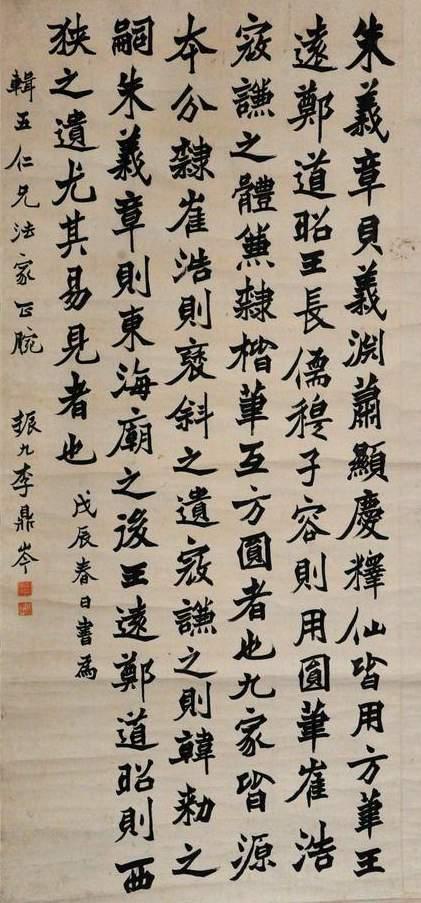 朱義章貝義淵蕭顯慶釋仙皆用方筆王
遠鄭道昭王長儒穆子容則用圓筆崔浩
寇謙之體兼隸楷筆互方圓者也九家皆源
本分隸崔浩則褒斜之遺寇謙之則韓勑之
嗣朱義章則東海廟之後王遠鄭道昭則西
狹之遺尤其易見者也 戊辰春日書為
輯五仁兄法家正腕 振九李鼎岑